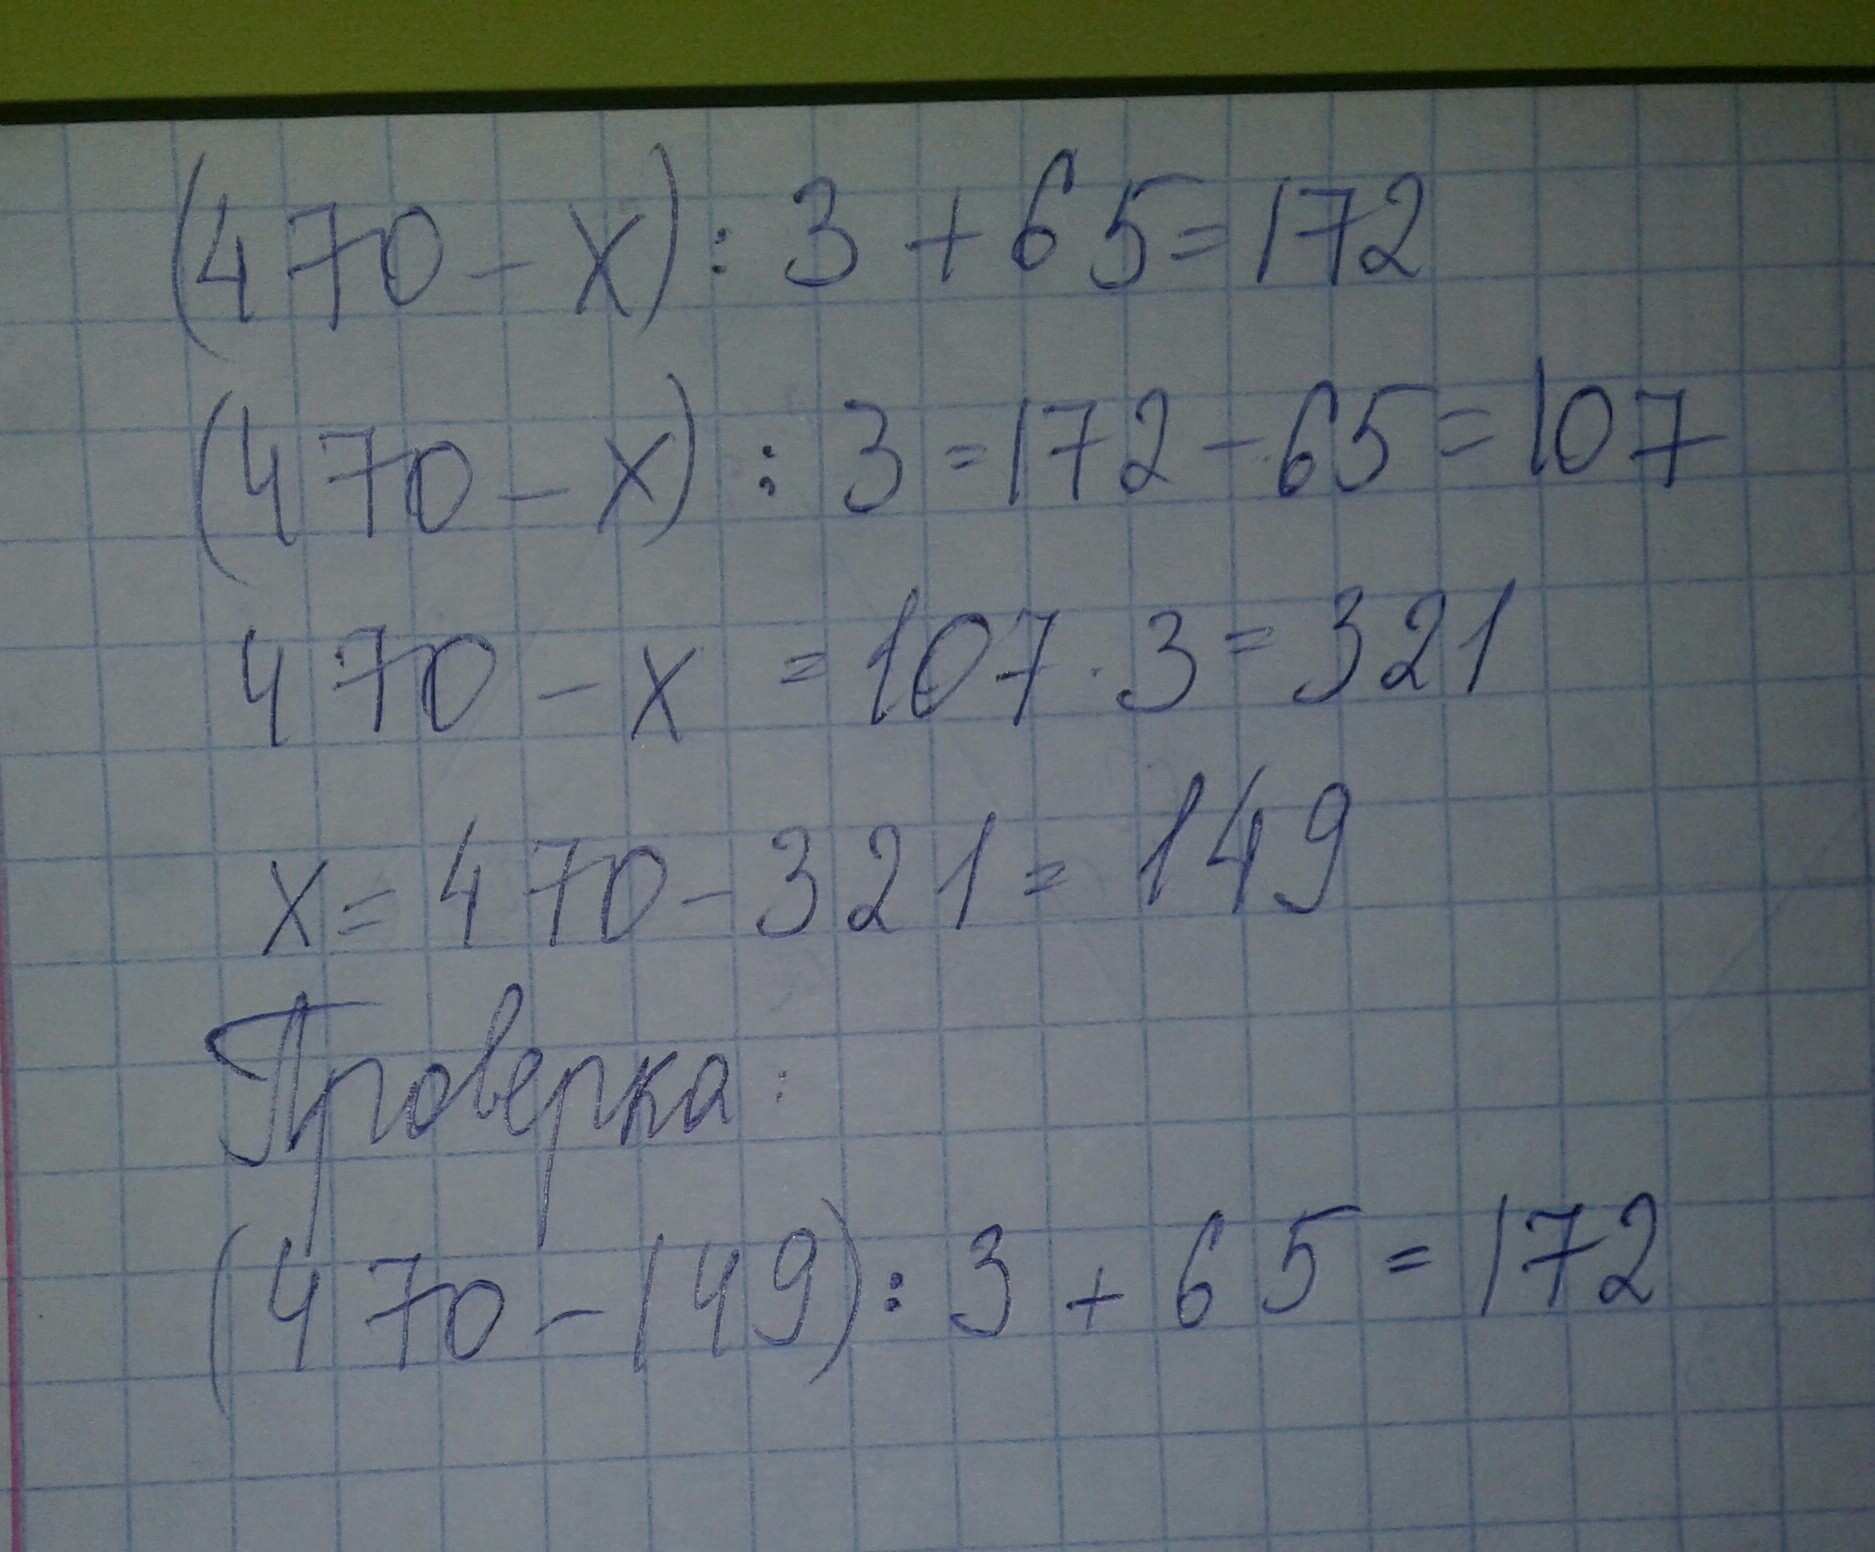 (470 - x) : 3 + 65 = 172
(470 - x) : 3 = 172 - 65 = 107
470 - x = 107 · 3 = 321
x = 470 - 321 = 149
Проверка:
(470 - 149) : 3 + 65 = 172